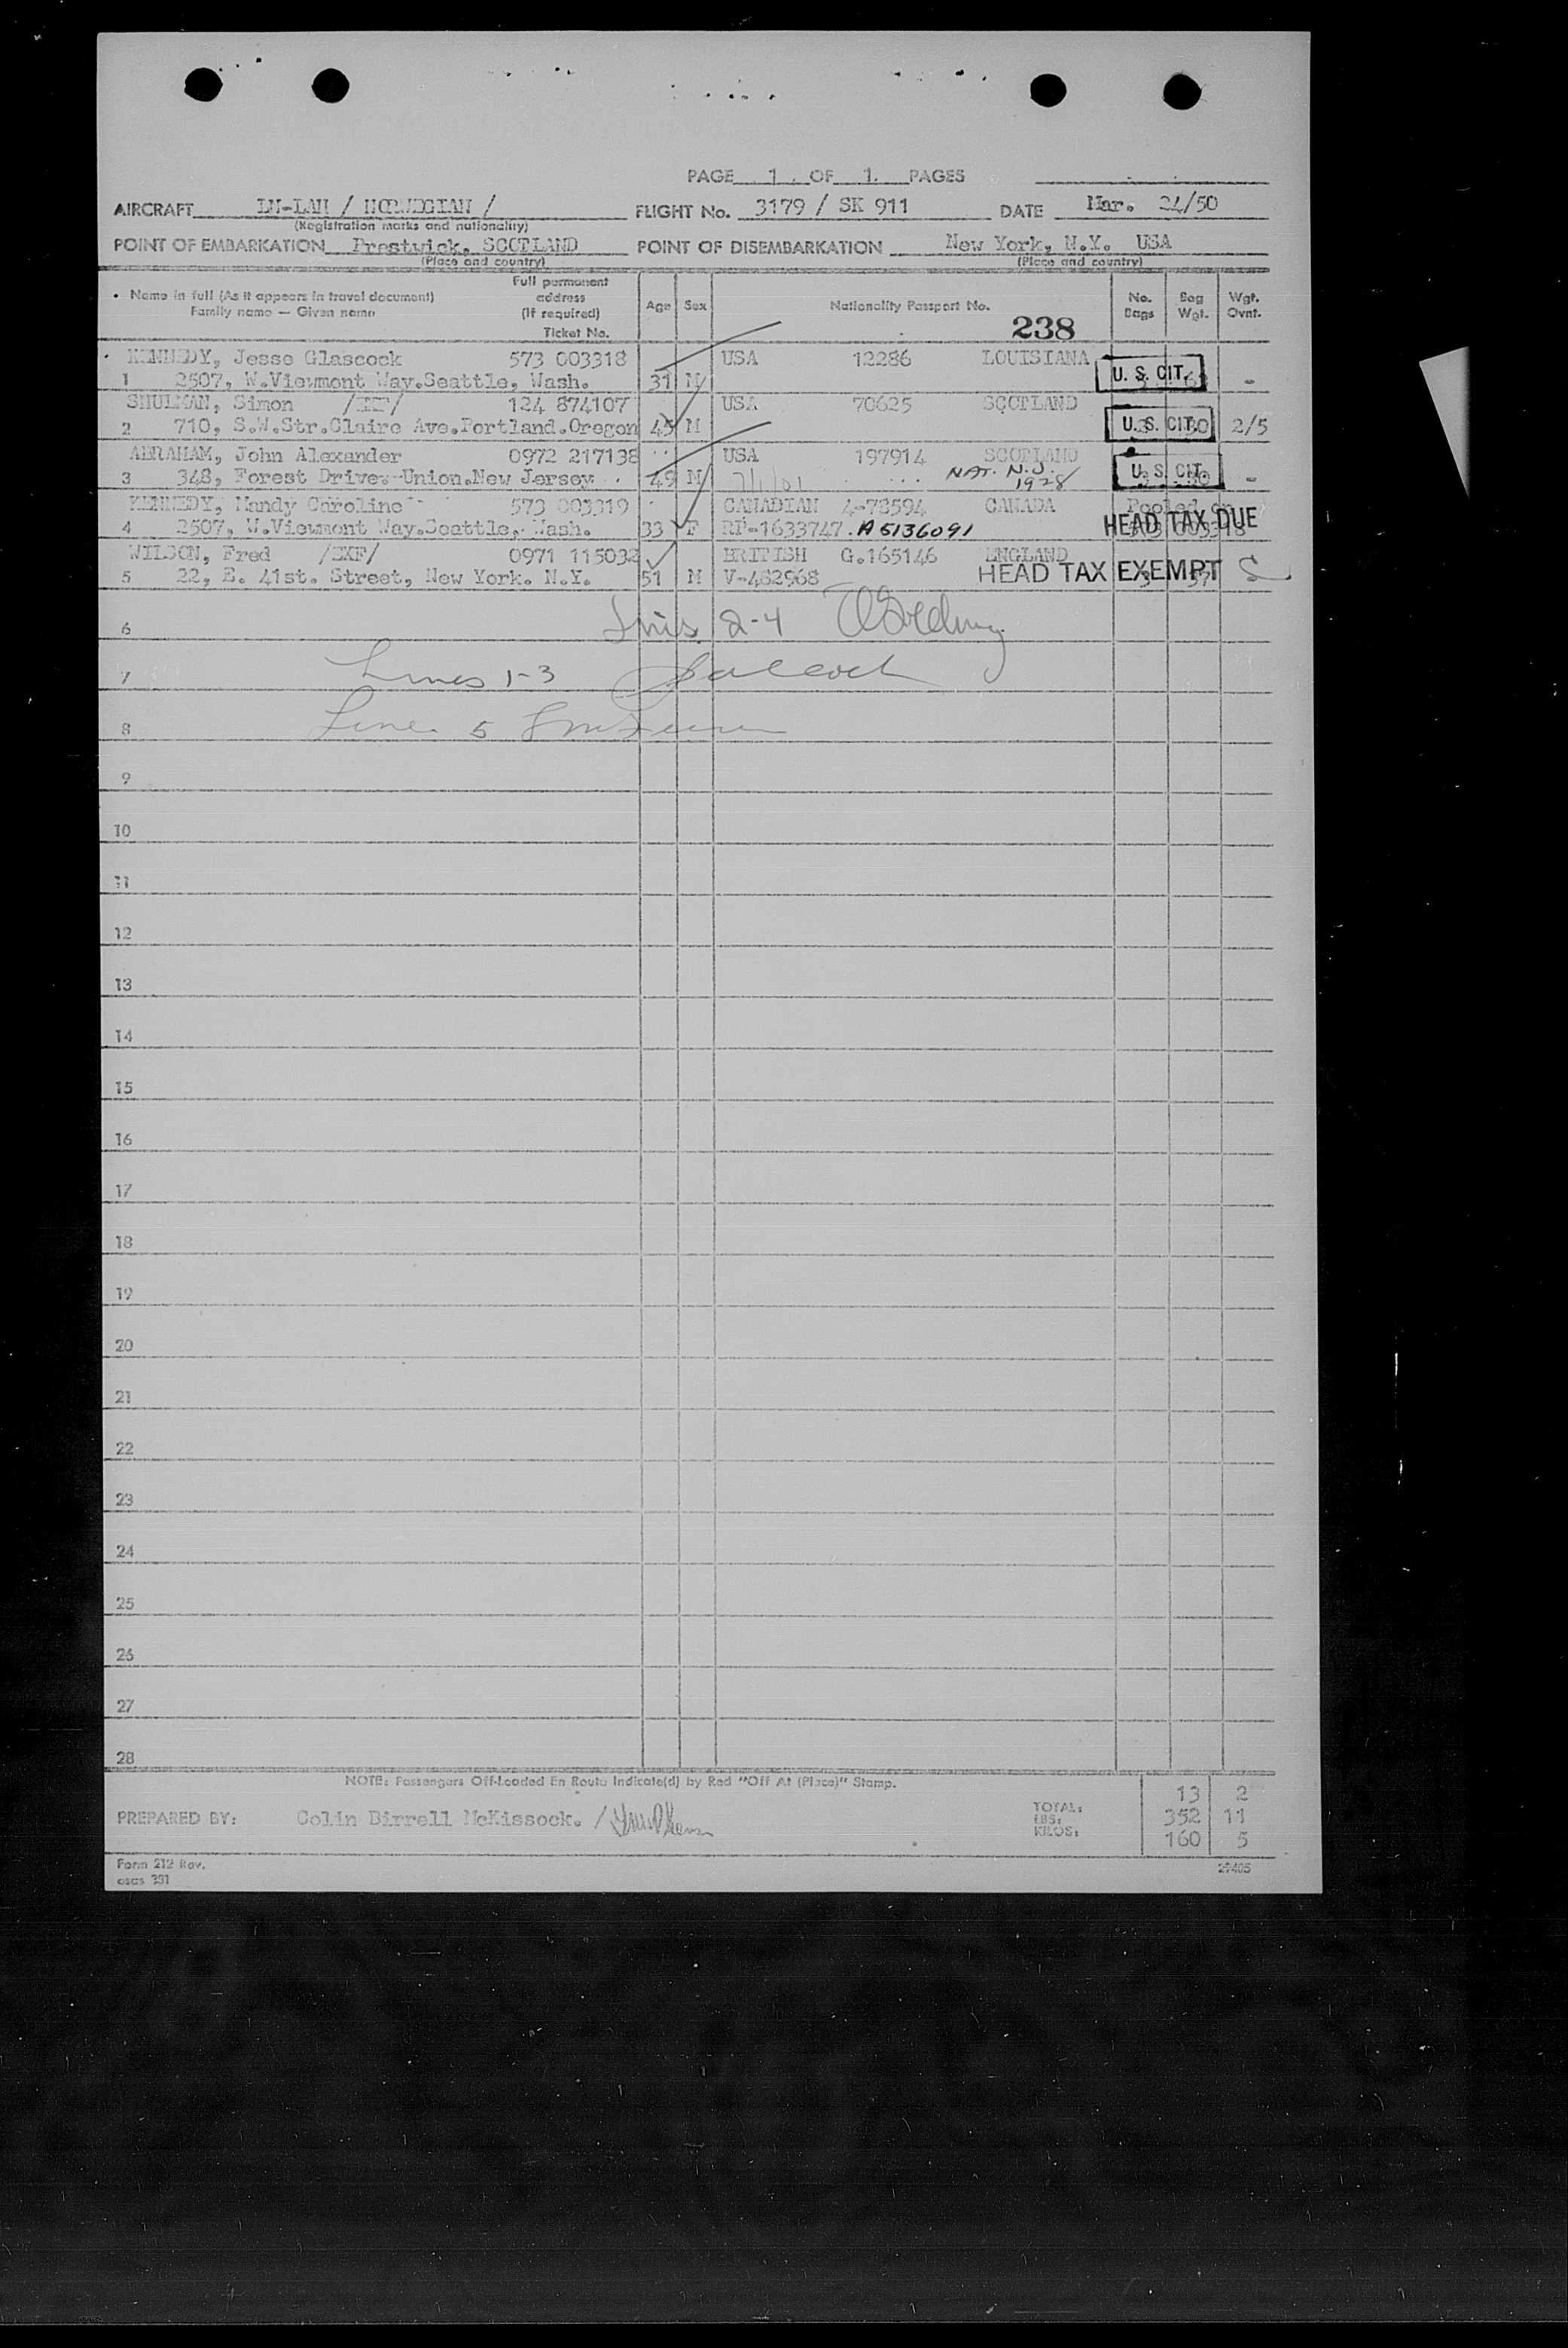 PAGE 1. OF 1. PAGES
AIRCRAFT LN-LAH / NORWEGIAN / FLIGHT No. 3179 / SK 911 DATE Mar. 24/50
(Registration marks and nationality)
POINT OF EMBARKATION Prestwick, SCOTLAND POINT OF DISEMBARKATION New York, N.Y. USA
(Place and country) (Place and country)
Name in full (As it appears in travel document) Family name — Given name Full permanent address (If required) Ticket No. Age Sex Nationality Passport No. No. Bags Bag Wgt. Wgt. Ovnt.
238
KENNEDY, Jesse Glascock 573 003318 USA 12286 LOUISIANA
1 2507, W.Viewmont Way.Seattle, Wash. 31 M U. S. CIT. -
SHULMAN, Simon 124 874107 USA 70625 SCOTLAND
2 710, S.W.Str.Claire Ave.Portland.Oregon 45 M U. S. CIT. 2/5
ABRAHAM, John Alexander 0972 217138 USA 197914 SCOTLAND
3 348, Forest Drive.-Union.New Jersey. 49 M 7/1/01 NAT. N.J. 1928 U. S. CIT. -
KENNEDY, Mandy Caroline 573 003319 CANADIAN 4-78594 CANADA Pooled
4 2507, W.Viewmont Way.Seattle, Wash. 33 F RP-1633747. A5136091 HEAD TAX DUE 003318
WILSON, Fred /EXF/ 0971 115032 BRITISH G.165146 ENGLAND
5 22, E. 41st. Street, New York. N.Y. 51 M V-482968 HEAD TAX EXEMPT
6 2-4
7 Lines 1-3
8 Line 5
9
10
11
12
13
14
15
16
17
18
19
20
21
22
23
24
25
26
27
28
NOTE: Passengers Off-Loaded En Route Indicate(d) by Red "Off At (Place)" Stamp.
PREPARED BY: Colin Birrell McKissock. /
TOTAL: 13 2
LBS: 352 11
KILOS: 160 5
Form 212 Rev.
29405